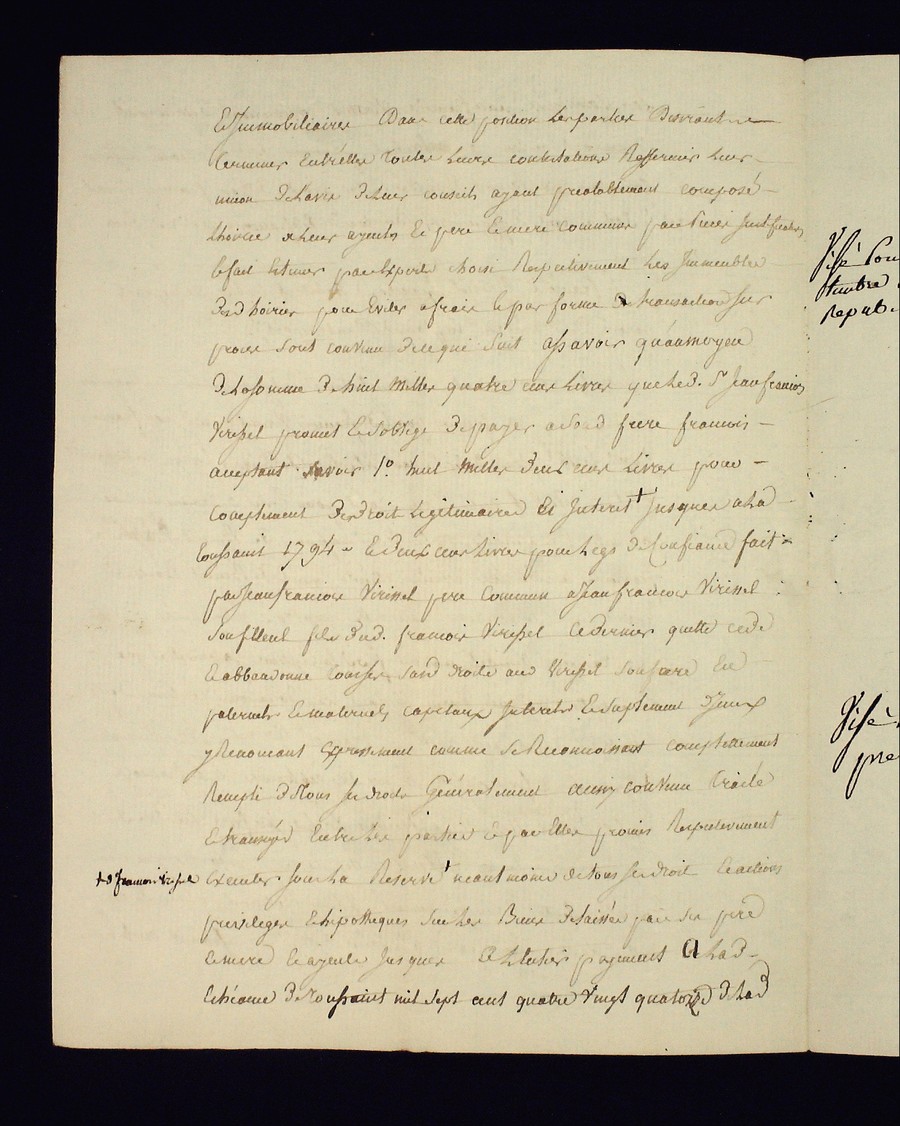 Et Immobiliaires Dans cette position Les parties Desirant
terminer Entrelles Toutes Leurs contestations Raffermir Leur
union De Lavis De Leur conseils ayant prealablement composé
Lhoirie de Leur ayeul Et pere Et mere communs par Pieces Justificatives
Et fait Estimer par Experts choisi Respectivement Les Immeubles
Desd hoiries pour Eviter a frais Et par forme De transaction Sur
proces Sont convenu De ce qui Suit assavoir quaumoyen
De la Somme De huit Milles quatre cens Livres que Led. Sr Jean françois
Virissel promet Et Soblige De payer a Sond frere francois
acceptant Savoir 1o. huit Milles Deux cens Livres pour
Complement Desd Droit Legitimaires Et Interet + Jusques a Lad
toussaint 1794 Et Deux cens Livres pour Legs De Confiance fait
par Jean francois Virissel pere Commun a Jean francois Virissel
Son filleul fils Dud. francois Virissel Ce Dernier quitte cede
Et abbandonne tous Ses Susd Droits aud Virissel Son frere Et
paternels Et maternels capitaux Interets Et Suplement Diceux
y Renoncant Expressement comme Se Reconnoissant complettement
Rempli De tous Ses droits Généralement ainsy convenu Traité
Et transigé Entre Les parties Et par Elles promis Respectivement
+ d francois Virissel
Executer Sous La Reserve + neantmoins de tous Ses droit Et actions
privileges Et hipotheques Sur Les Biens Delaissés par Ses pere
Et mere Et ayeule Jusques au Entier payement a Lad
Echéance De Toussaint mil Sept cent quatre Vingt quatorze De Lad
Visé Pour
timbre
Repub.
Visé
pre